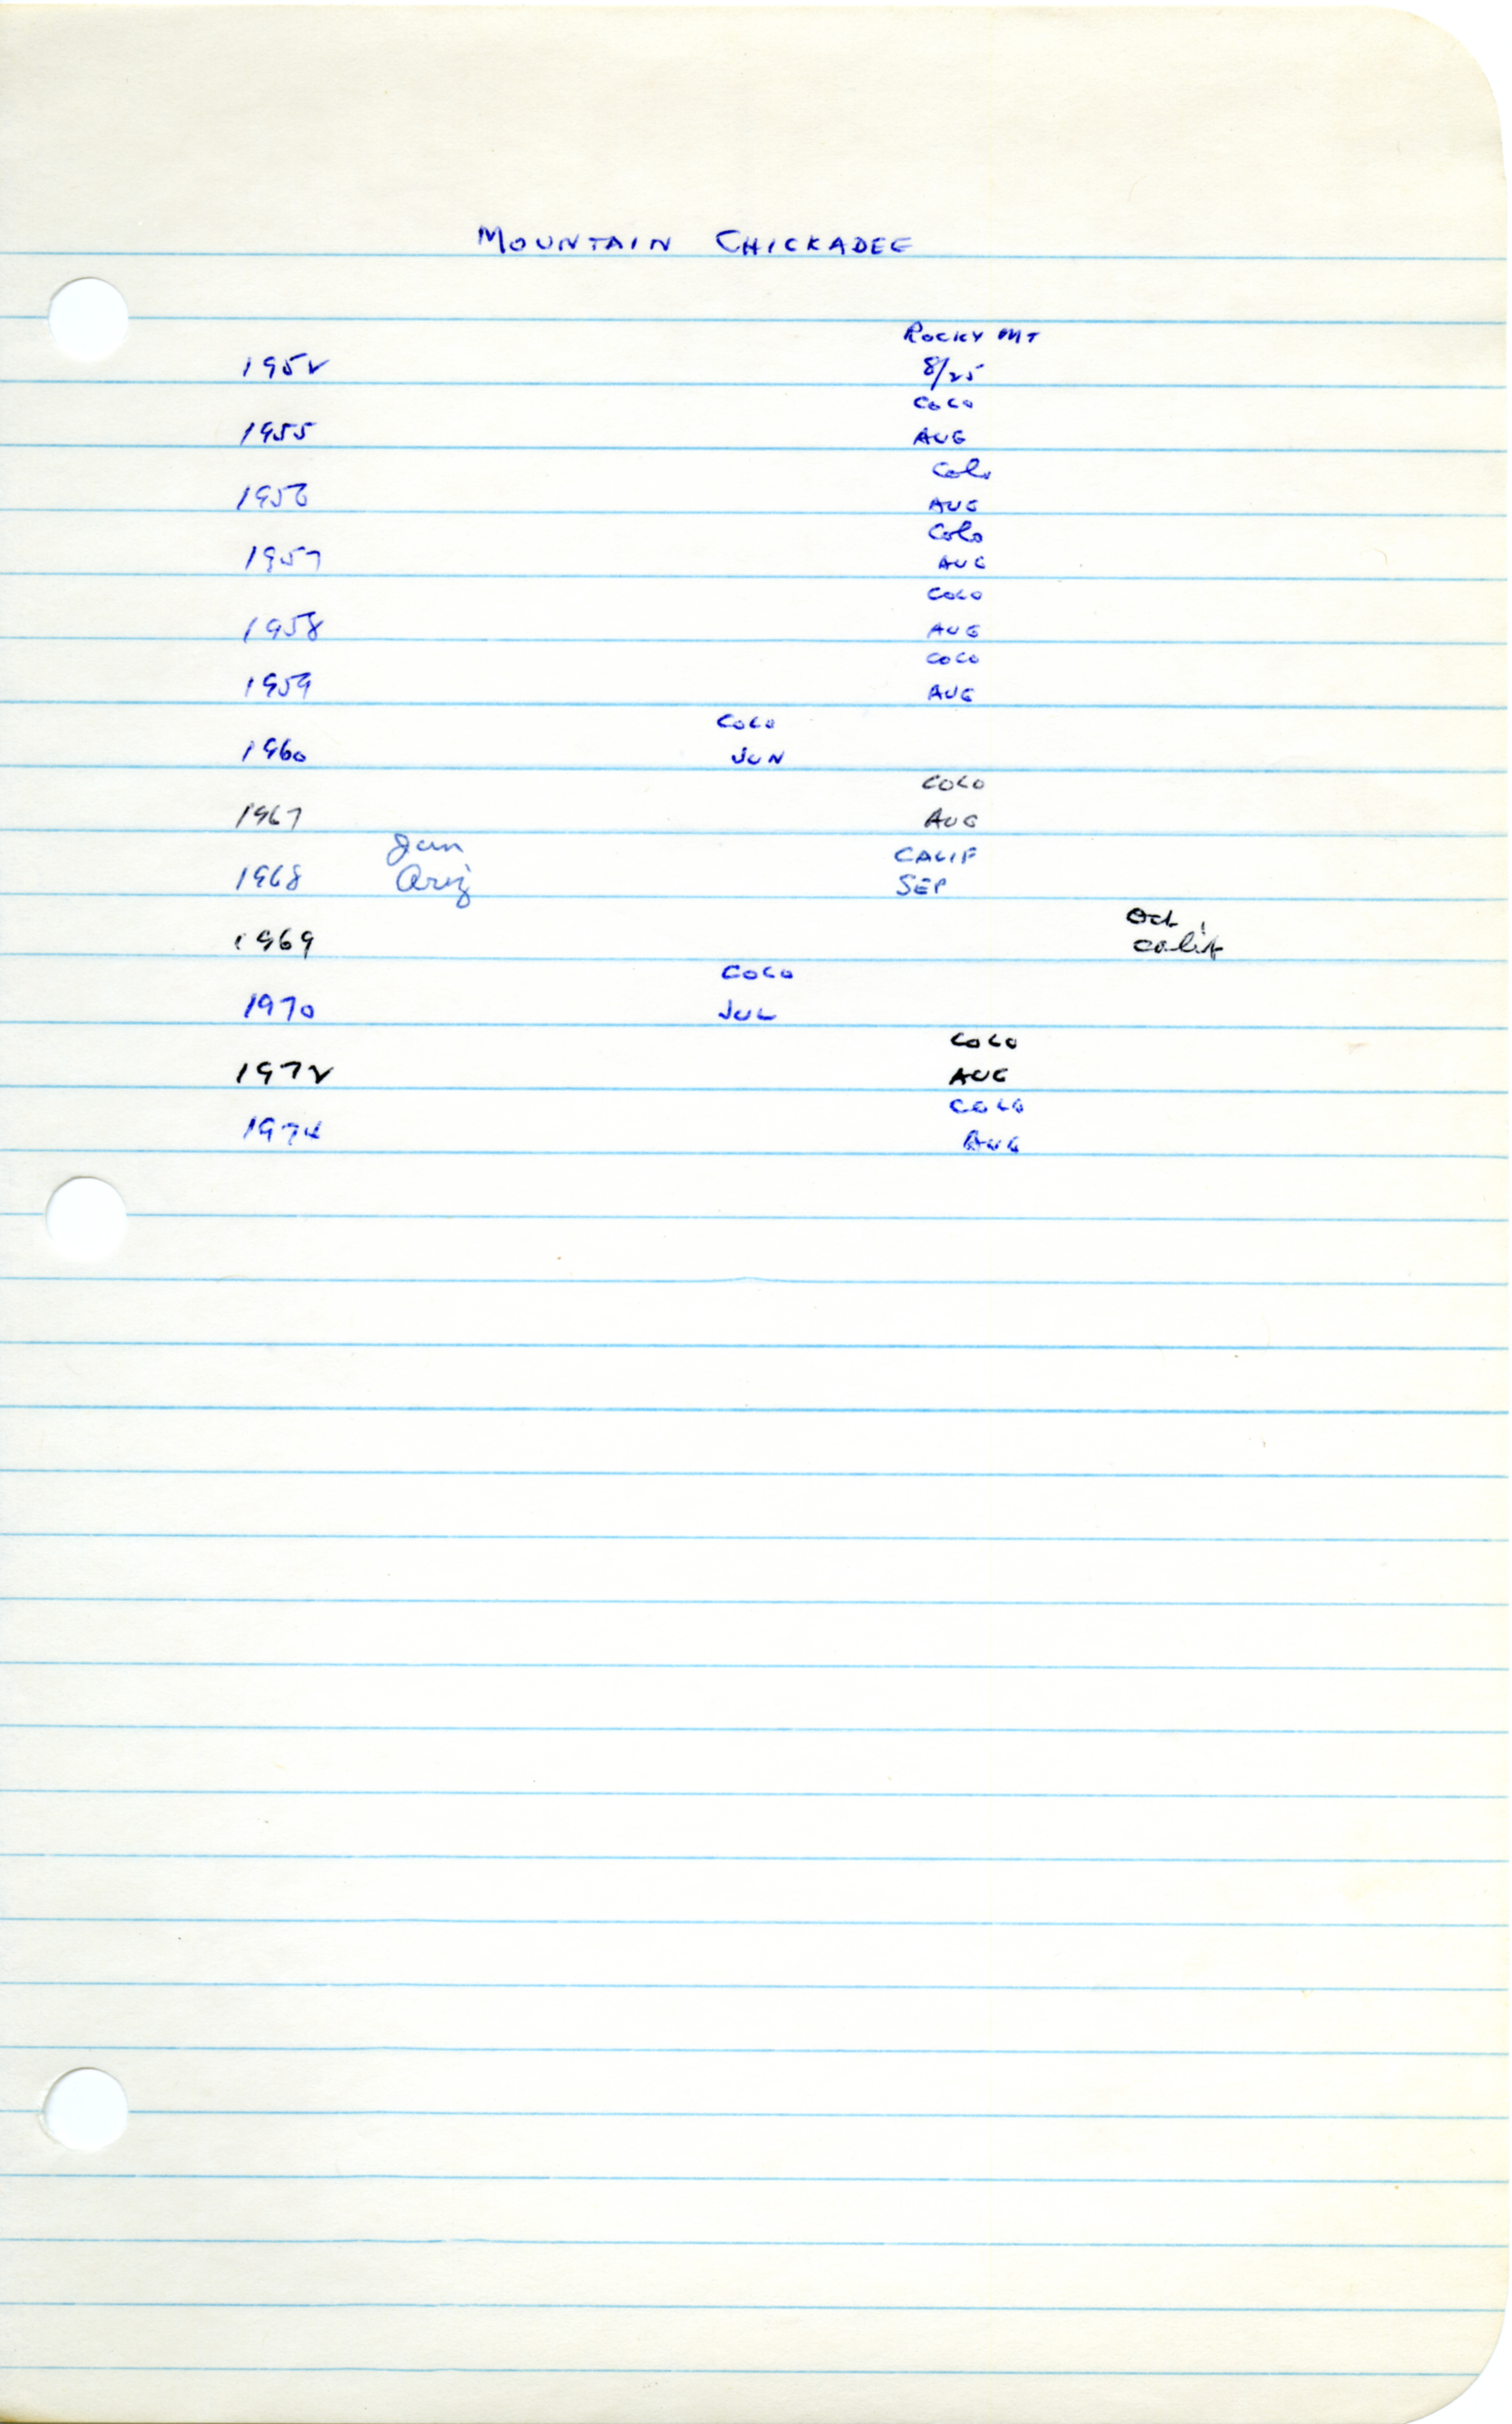 MOUNTAIN CHICKADEE
ROCKY MT
1952 8/25
COLO
1955 AUG
Colo
1956 AUG
Colo
1957 AUG
COLO
1958 AUG
COLO
1959 AUG
COLO
1960 JUN
COLO
1967 AUG
Jan CALIF
1968 Ariz SEP
Oct
1969 Calif
COLO
1970 JUL
COLO
1972 AUG
COLO
1974 AUG